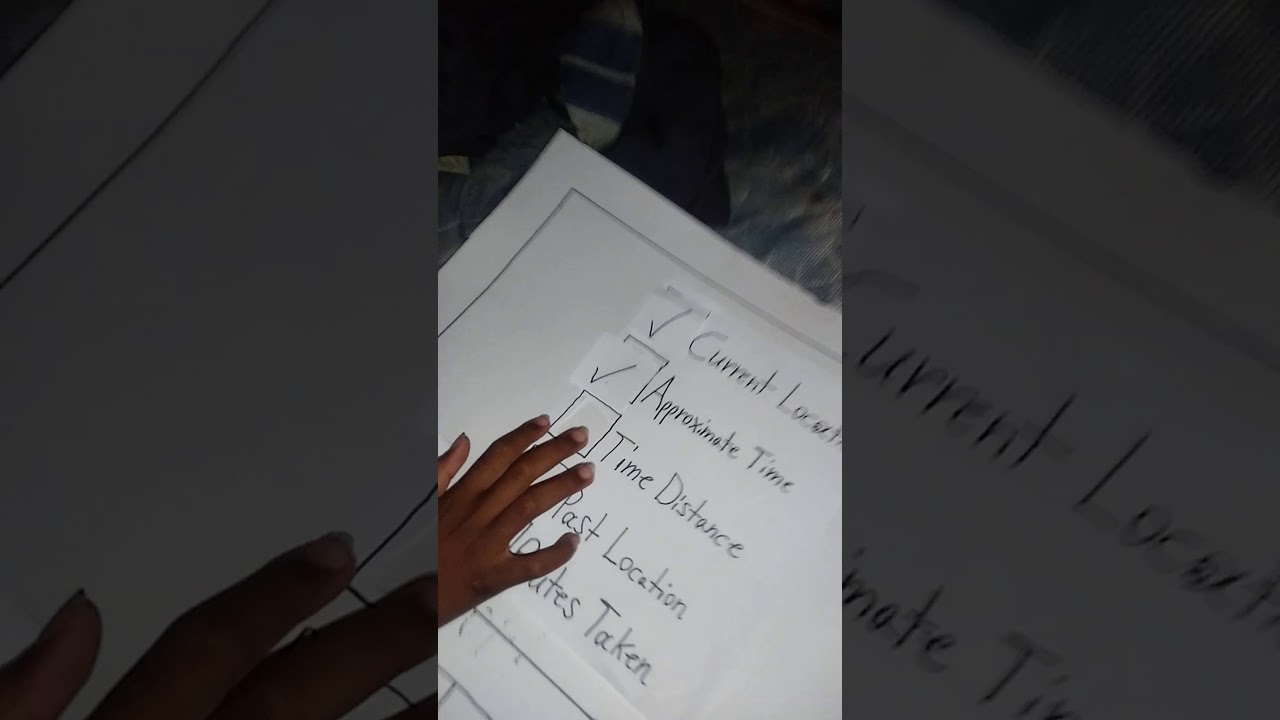 ✓ Current Locat
✓ Approximate Time
Time Distance
Past Location
Routes Taken